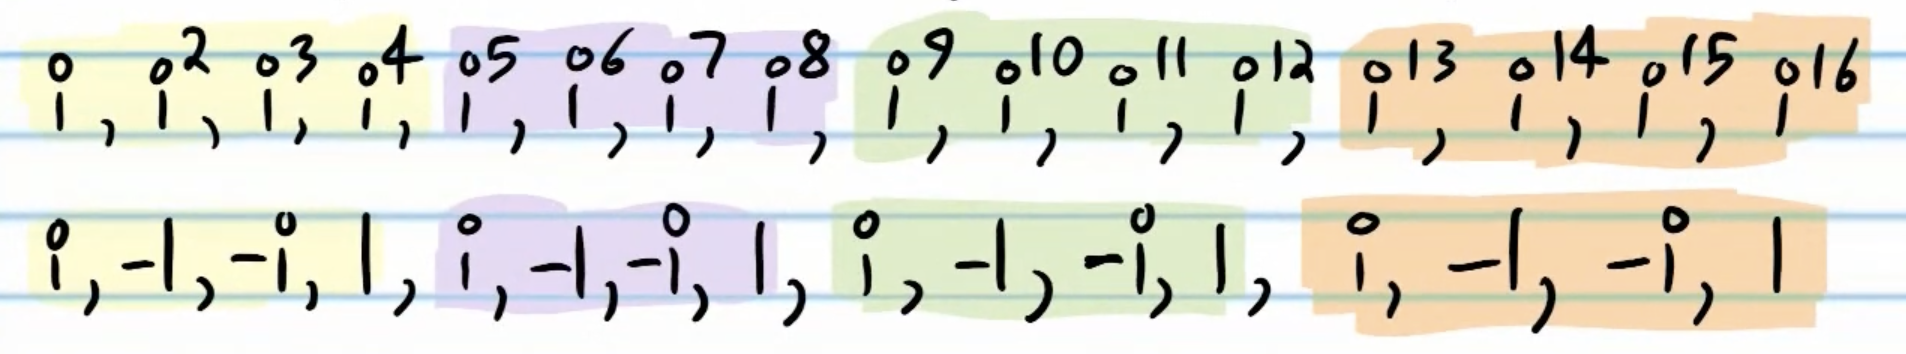 i, i², i³, i⁴, i⁵, i⁶, i⁷, i⁸, i⁹, i¹⁰, i¹¹, i¹², i¹³, i¹⁴, i¹⁵, i¹⁶
i, -1, -i, 1, i, -1, -i, 1, i, -1, -i, 1, i, -1, -i, 1